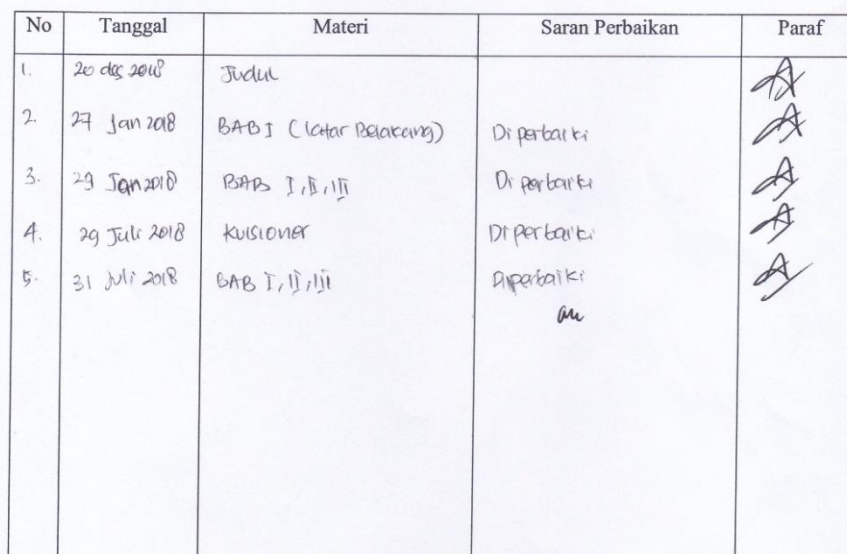 No Tanggal Materi Saran Perbaikan Paraf
1. 20 des 2018 Judul
2. 27 Jan 2018 BAB I (Latar Belakang) Diperbaiki
3. 29 Jan 2018 BAB I, II, III Diperbaiki
4. 29 Juli 2018 Kuisioner Diperbaiki
5. 31 Juli 2018 BAB I, II, III Diperbaiki